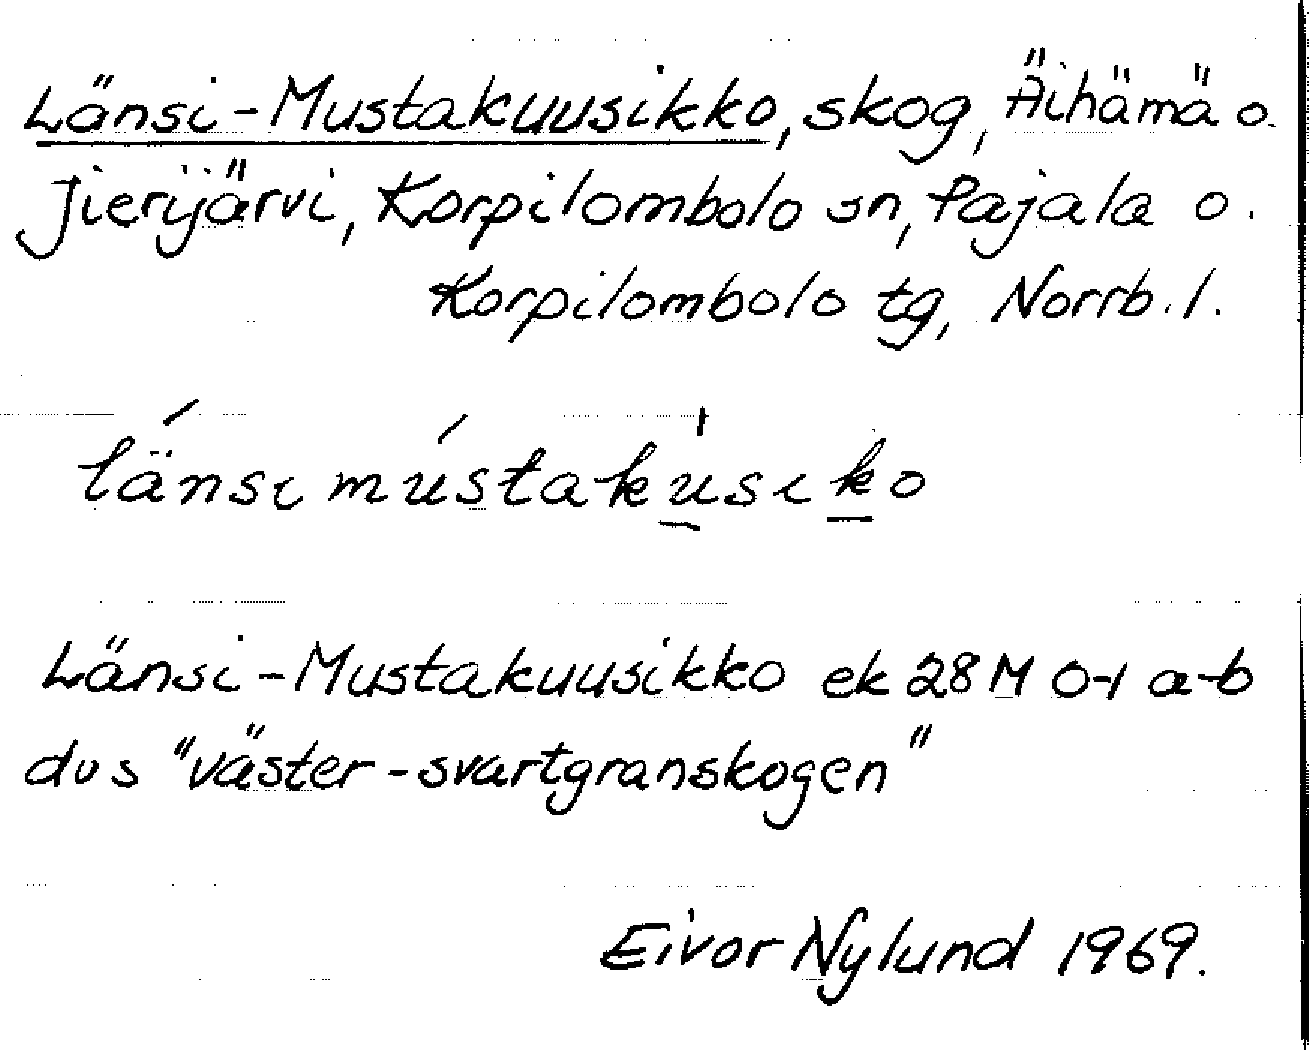 Länsi-Mustakuusikko, skog, Äihämä o.
Jierijärvi, Korpilombolo sn, Pajala o.
Korpilombolo tg, Norrb. l.
länsi mustakusiko
Länsi-Mustakuusikko ek 28 M 0-1 a-b
dvs "väster-svartgranskogen"
Eivor Nylund 1969.